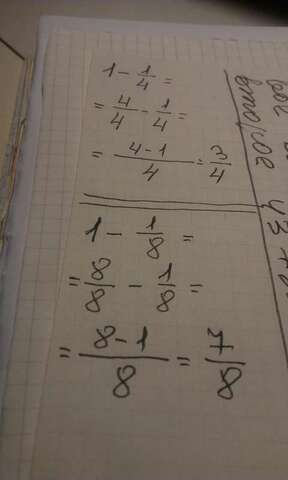 1 - 1/4 =
= 4/4 - 1/4 =
= (4-1)/4 = 3/4
1 - 1/8 =
= 8/8 - 1/8 =
= (8-1)/8 = 7/8
второе из